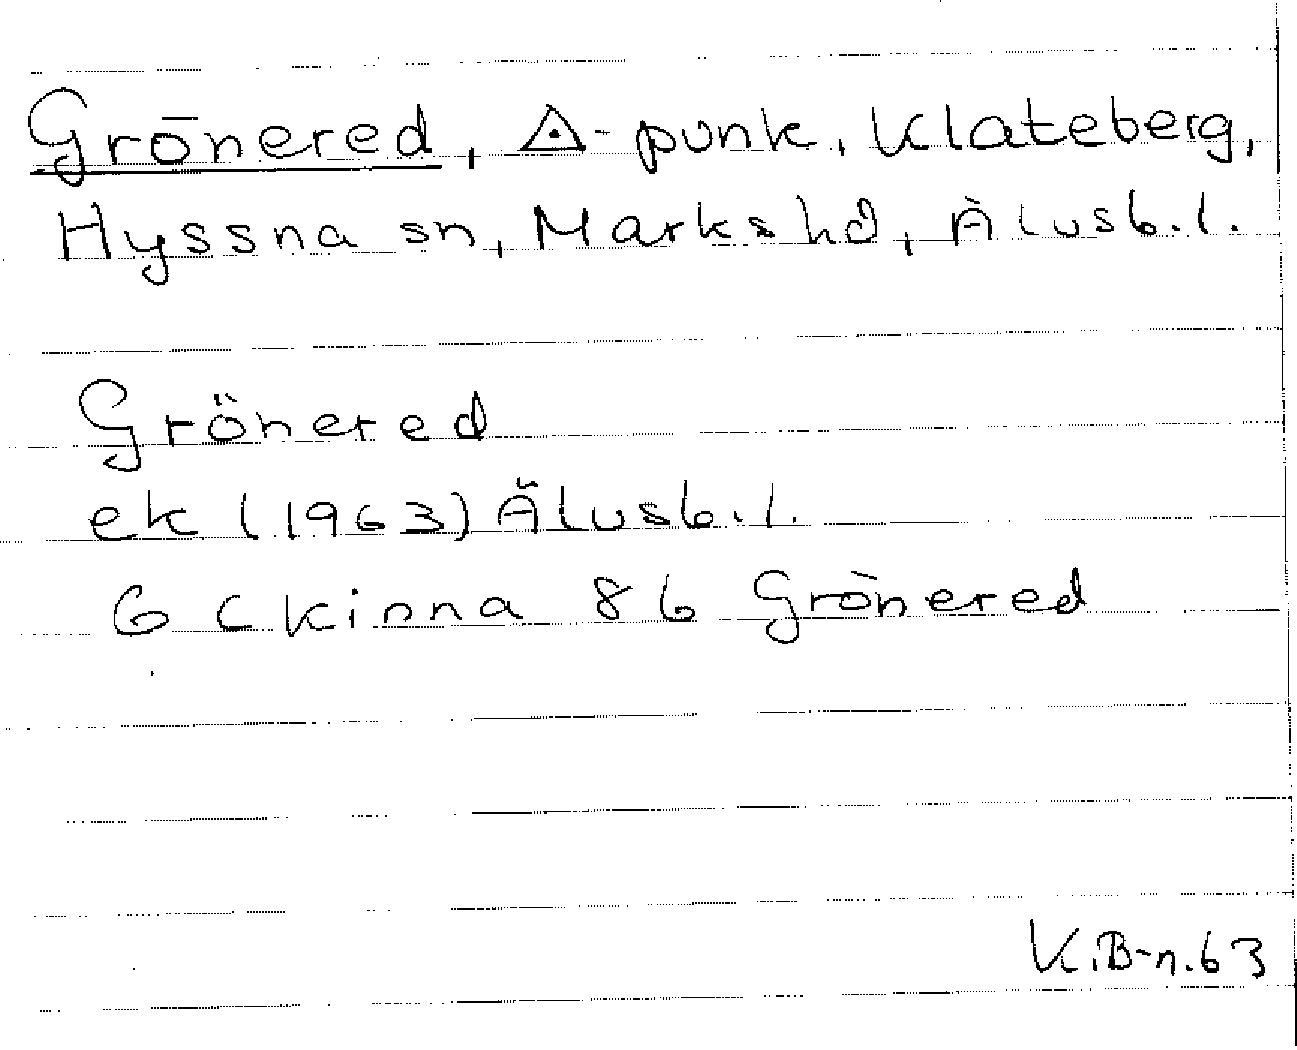 Grönered, △-punk, Klateberg,
Hyssna sn, Marks hd, Älvsb.l.
Grönered
ek (1963) Älvsb.l.
6 C Kinna 8b Grönered
K.B-n.63